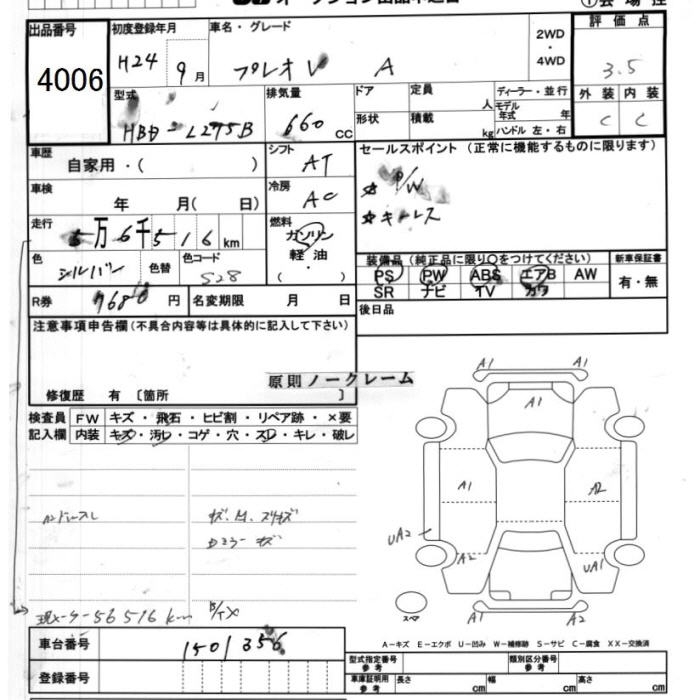 出品番号
4006
初度登録年月
H24 9月
車名・グレード
プレオ V A
2WD
・
4WD
評価点
3.5
外装 内装
C C
型式
HBD-L275B
排気量
660 CC
ドア
定員 人
形状
積載 kg
ディーラー・並行
モデル年式 年
ハンドル 左・右
車歴
自家用・( )
シフト
AT
セールスポイント (正常に機能するものに限ります)
☆ P/W
☆ キーレス
車検
年 月( 日)
冷房
AC
走行
5万6千516km
燃料
ガソリン
軽油
・
色
シルバー
色替
色コード
S28
装備品 (純正品に限り○をつけてください)
PS PW ABS エアB AW
SR ナビ TV カワ
新車保証書
有・無
R券
7680円
名変期限 月 日
後日品
注意事項申告欄 (不具合内容等は具体的に記入して下さい)
原則ノークレーム
修復歴 有 〔箇所 〕
検査員
記入欄
FW キズ・飛石・ヒビ割・リペア跡・×要
内装 キズ・汚レ・コゲ・穴・スレ・キレ・破レ
現メーター56516km
A1 A1
A1
A1 A2
UA2
A2 UA1
A1 A2
スペア
A-キズ E-エクボ U-凹み W-補修跡 S-サビ C-腐食 XX-交換済
車台番号
1501356
登録番号
型式指定番号 参考
類別区分番号 参考
車庫証明用 参考
長さ cm 幅 cm 高さ cm